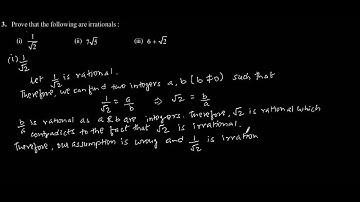 3. Prove that the following are irrationals :
(i) 1/√2 (ii) 7√5 (iii) 6 + √2
(i) 1/√2
Let 1/√2 is rational.
Therefore, we can find two integers a, b (b ≠ 0) such that
1/√2 = a/b ⇒ √2 = b/a
b/a is rational as a & b are integers. Therefore, √2 is rational which
contradicts to the fact that √2 is irrational.
Therefore, our assumption is wrong and 1/√2 is irration